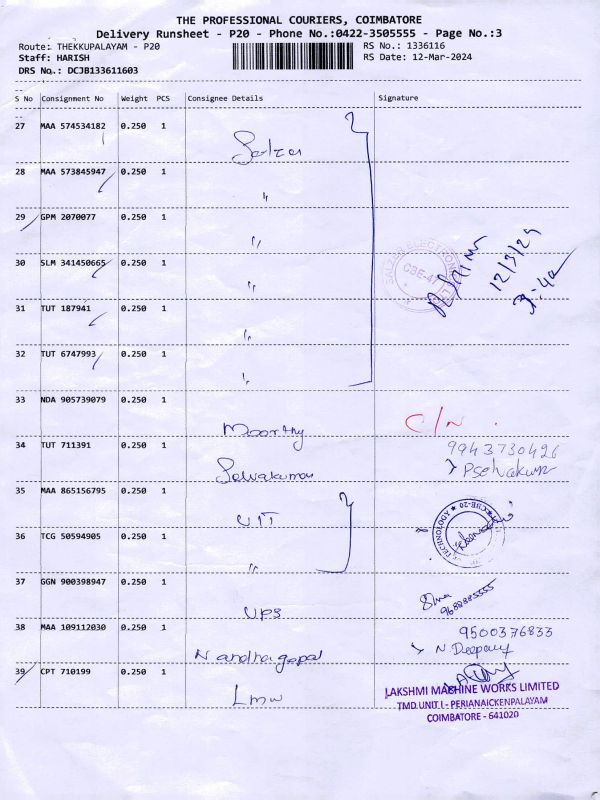 THE PROFESSIONAL COURIERS, COIMBATORE
Delivery Runsheet - P20 - Phone No.:0422-3505555 - Page No.:3
Route: THEKKUPALAYAM - P20 RS No.: 1336116
Staff: HARISH RS Date: 12-Mar-2024
DRS No.: DCJB133611603
S No Consignment No Weight PCS Consignee Details Signature
27 MAA 574534182 0.250 1
Salzer
28 MAA 573845947 0.250 1
"
29 GPM 2070077 0.250 1
"
30 SLM 341450665 0.250 1
"
SALZER ELECTRONICS
CBE-47
12/3/24
31 TUT 187941 0.250 1
"
32 TUT 6747993 0.250 1
"
33 NDA 905739079 0.250 1
Moorthy C/N
34 TUT 711391 0.250 1 9943730426
Selvakumar Pselvakumar
35 MAA 865156795 0.250 1
UTT
36 TCG 50594905 0.250 1
"
CBE-20
37 GGN 900398947 0.250 1
UPS 9688885555
38 MAA 109112030 0.250 1 9500376833
Nandhagopal N. Deepany
39 CPT 710199 0.250 1
Lmw
LAKSHMI MACHINE WORKS LIMITED
TMD.UNIT.I - PERIANAICKENPALAYAM
COIMBATORE - 641020